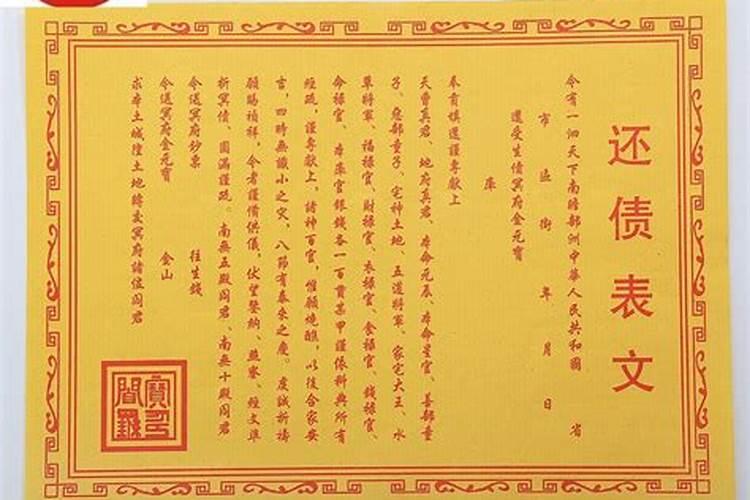 还债表文
今有一泗天下南瞻部洲中華人民共和國 省
市 區 街 年 月 日
還受生債冥府金元寶
庫
奉育填還謹專獻上
天曹真君、地府真君、本命元辰、本命星官、善部童
子、惡部童子、宅神土地、五道將軍、家宅大王、水
草將軍、福祿官、財祿官、衣祿官、食祿官、錢祿官、
命祿官、本庫官銀錢各一百貫某甲謹依科典所有
經疏，謹專獻上，諸神百官，惟願燒醮，以後合家安
吉，四時無識小之灾，八節有泰來之慶。虔誠祈禱
願賜禎祥，令者謹備供儀，伏望鑒納、
析冥債、圓滿謹疏。南無五殿阎君、南無十殿阎君
令送冥府鈔票 往生錢
令送冥府金元寶 金山
求本土城隍土地轉交冥府諸位阎君